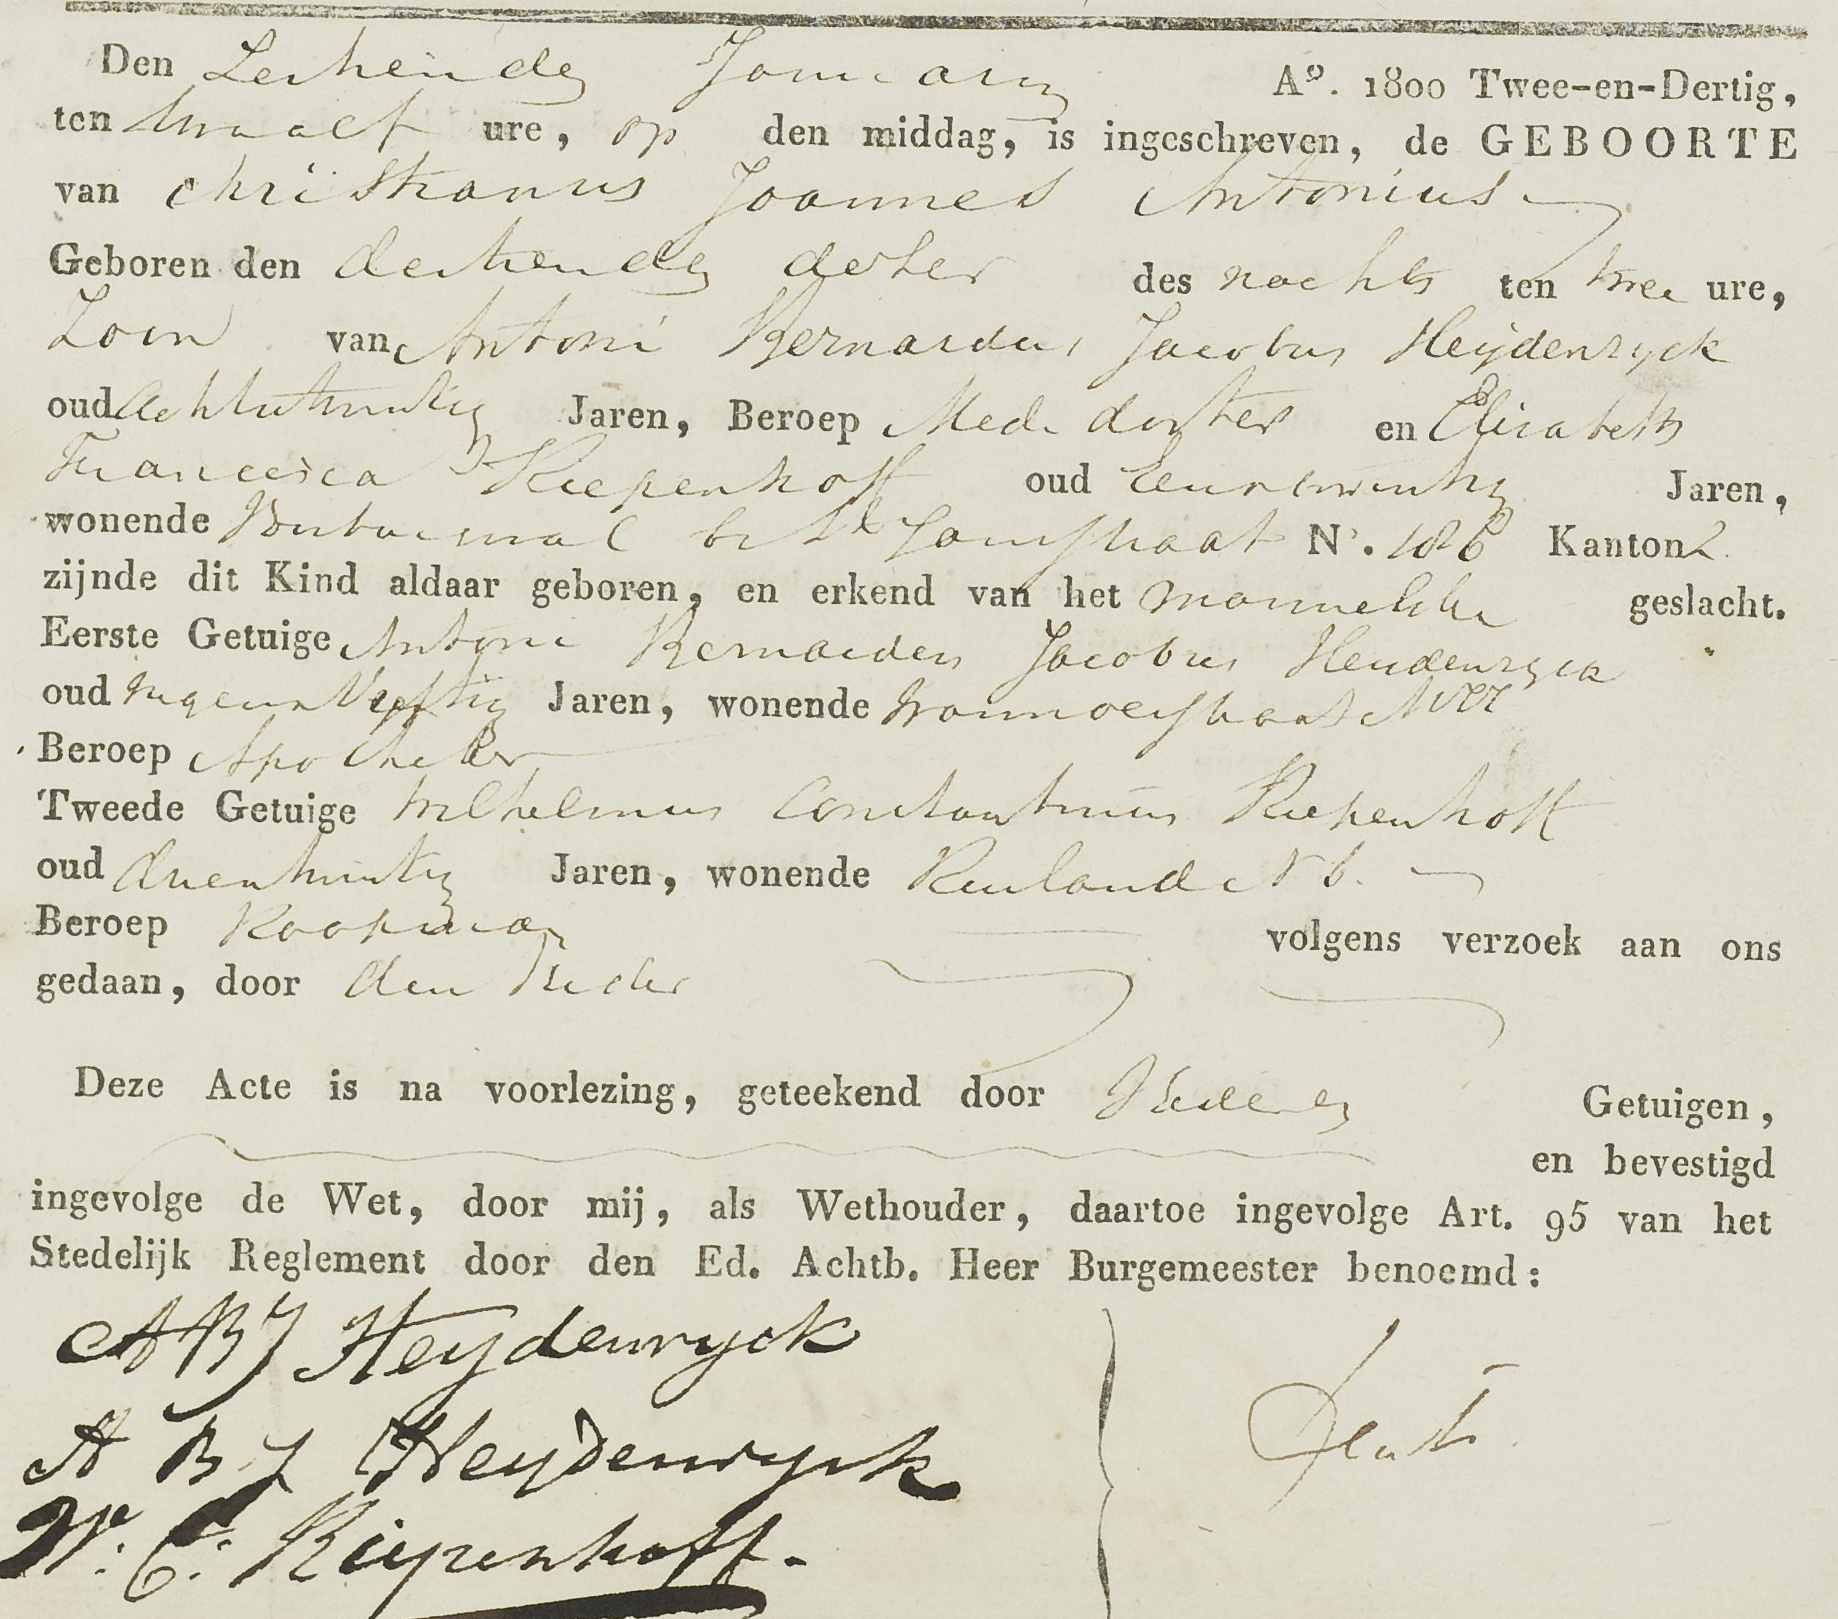 Den Zestienden January A°. 1800 Twee-en-Dertig,
ten twaalf ure, op den middag, is ingeschreven, de GEBOORTE
van Christianus Joannes Antonius
Geboren den dertienden dezer des nachts ten twee ure,
Zoon van Antoni Bernardus Jacobus Heydenryck
oud achtentwintig Jaren, Beroep Med. doctor en Elisabeth
Francisca Kiepenhoff oud eenentwintig Jaren,
wonende Voorburgwal bij de Jansstraat N°. 186 Kanton 2
zijnde dit Kind aldaar geboren, en erkend van het mannelijke geslacht.
Eerste Getuige Antoni Bernardus Jacobus Heydenryck
oud negenenvijftig Jaren, wonende Warmoesstraat
Beroep Apotheker
Tweede Getuige Wilhelmus Constantinus Kiepenhoff
oud drieentwintig Jaren, wonende N 6.
Beroep Koopman volgens verzoek aan ons
gedaan, door den Vader
Deze Acte is na voorlezing, geteekend door Vader en Getuigen,
en bevestigd
ingevolge de Wet, door mij, als Wethouder, daartoe ingevolge Art. 95 van het
Stedelijk Reglement door den Ed. Achtb. Heer Burgemeester benoemd:
ABJ Heydenryck
A B J Heydenryck
W. C. Kiepenhoff.